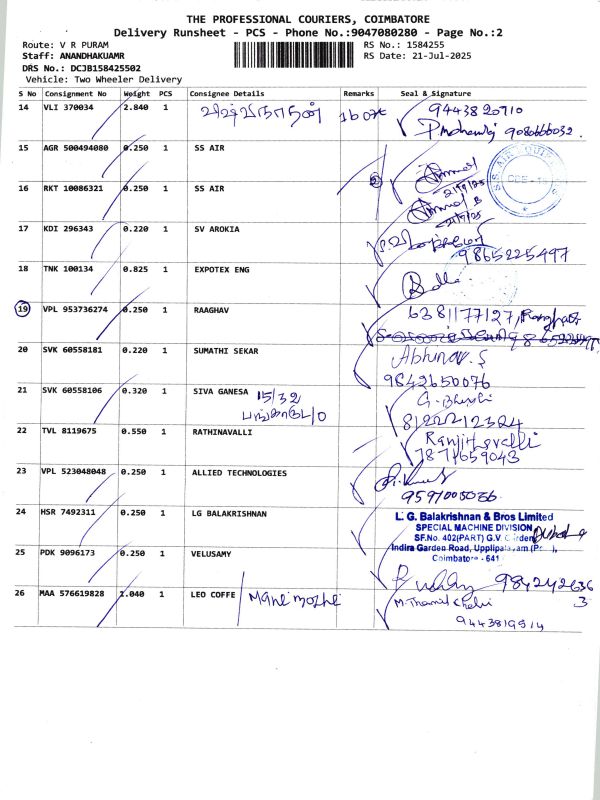 THE PROFESSIONAL COURIERS, COIMBATORE
Delivery Runsheet - PCS - Phone No.:9047080280 - Page No.:2
Route: V R PURAM RS No.: 1584255
Staff: ANANDHAKUAMR RS Date: 21-Jul-2025
DRS No.: DCJB158425502
Vehicle: Two Wheeler Delivery
S No Consignment No Weight PCS Consignee Details Remarks Seal & Signature
14 VLI 370034 2.840 1 9443820710
15 AGR 500494080 0.250 1 SS AIR
16 RKT 10086321 0.250 1 SS AIR
17 KDI 296343 0.220 1 SV AROKIA
9865225497
18 TNK 100134 0.825 1 EXPOTEX ENG
19 VPL 953736274 0.250 1 RAAGHAV 6381177127,
20 SVK 60558181 0.220 1 SUMATHI SEKAR Abhinav.S
9842650076
21 SVK 60558106 0.320 1 SIVA GANESA 15/32
8122212324
22 TVL 8119675 0.550 1 RATHINAVALLI
7871659043
23 VPL 523048048 0.250 1 ALLIED TECHNOLOGIES
24 HSR 7492311 0.250 1 LG BALAKRISHNAN L. G. Balakrishnan & Bros Limited
SPECIAL MACHINE DIVISION
SF.No. 402(PART) G.V. Garden
25 PDK 9096173 0.250 1 VELUSAMY Indira Garden Road, Upplipalayam
Coimbatore - 641
26 MAA 576619828 1.040 1 LEO COFFE
9443819514